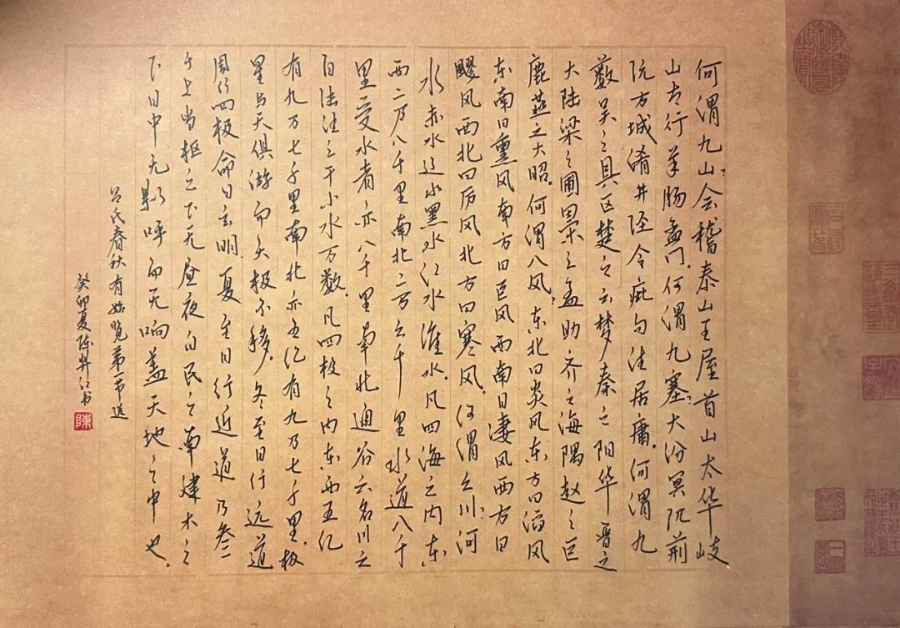 何谓九山?会稽泰山王屋首山太华岐
山太行羊肠孟门。何谓九塞?大汾冥阨荆
阮方城淆井陉令疵句注居庸。何谓九
薮吴之具区楚之云梦秦之阳华晋之
大陆梁之圃田宋之孟助齐之海隅赵之巨
鹿燕之大昭。何谓八风?东北曰炎风东方曰滔风
东南曰熏风南方曰巨风西南曰凄风西方曰
飂风西北曰厉风北方曰寒风。何谓六川?河
水赤水辽水黑水江水淮水。凡四海之内东
西二万八千里南北二万六千里水道八千
里受水者亦八千里南北通谷六名川六
百陆注三千小水万数。凡四极之内东西五亿
有九万七千里南北亦五亿有九万七千里。极
星与天俱游而天极不移。冬至日行远道
周行四极命曰玄明。夏至日行近道乃参
于上当枢之下无昼夜白民之南建木之
下日中无影呼而无响盖天地之中也。
吕氏春秋有始览第一节选
癸卯夏陈江书
陳